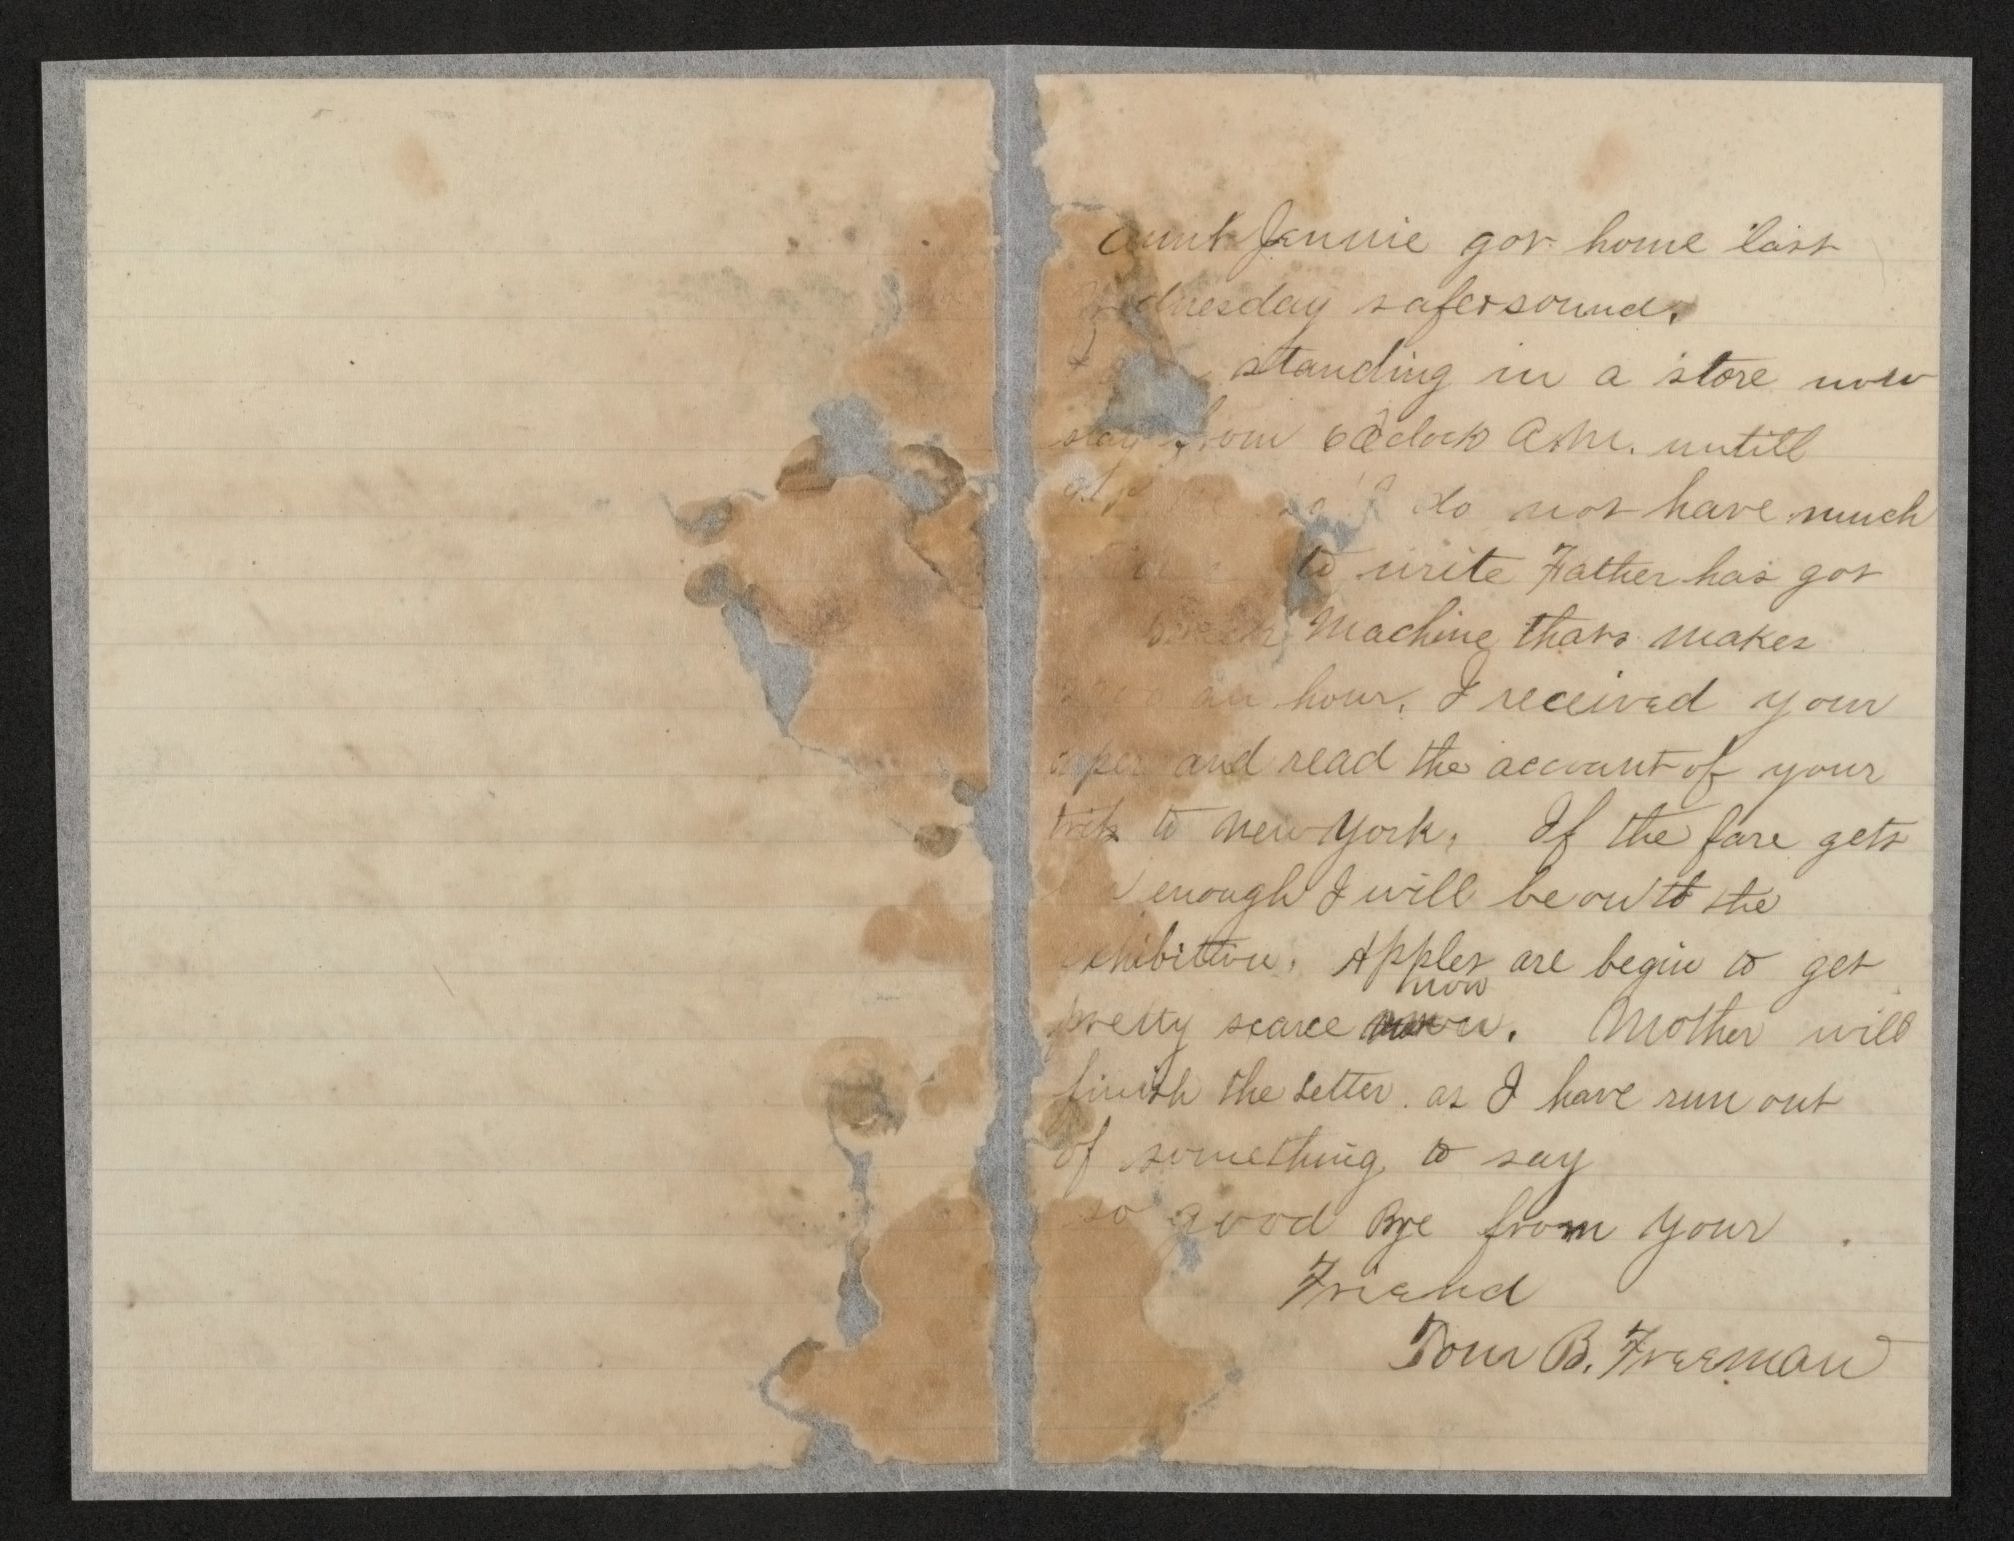 Aunt Jennie got home last
Wednesday safe + sound.
standing in a store now
stay from 6 Oclock A.M. untill
do not have much
to write Father has got
Machine thats makes
an hour. I received your
aper and read the account of your
trip to New York. If the fare gets
enough I will be on to the
exhibition. Apples are begin to get
now
pretty scarce. Mother will
finish the letter as I have run out
of something to say
so good Bye from your
Friend
Tom B. Freeman